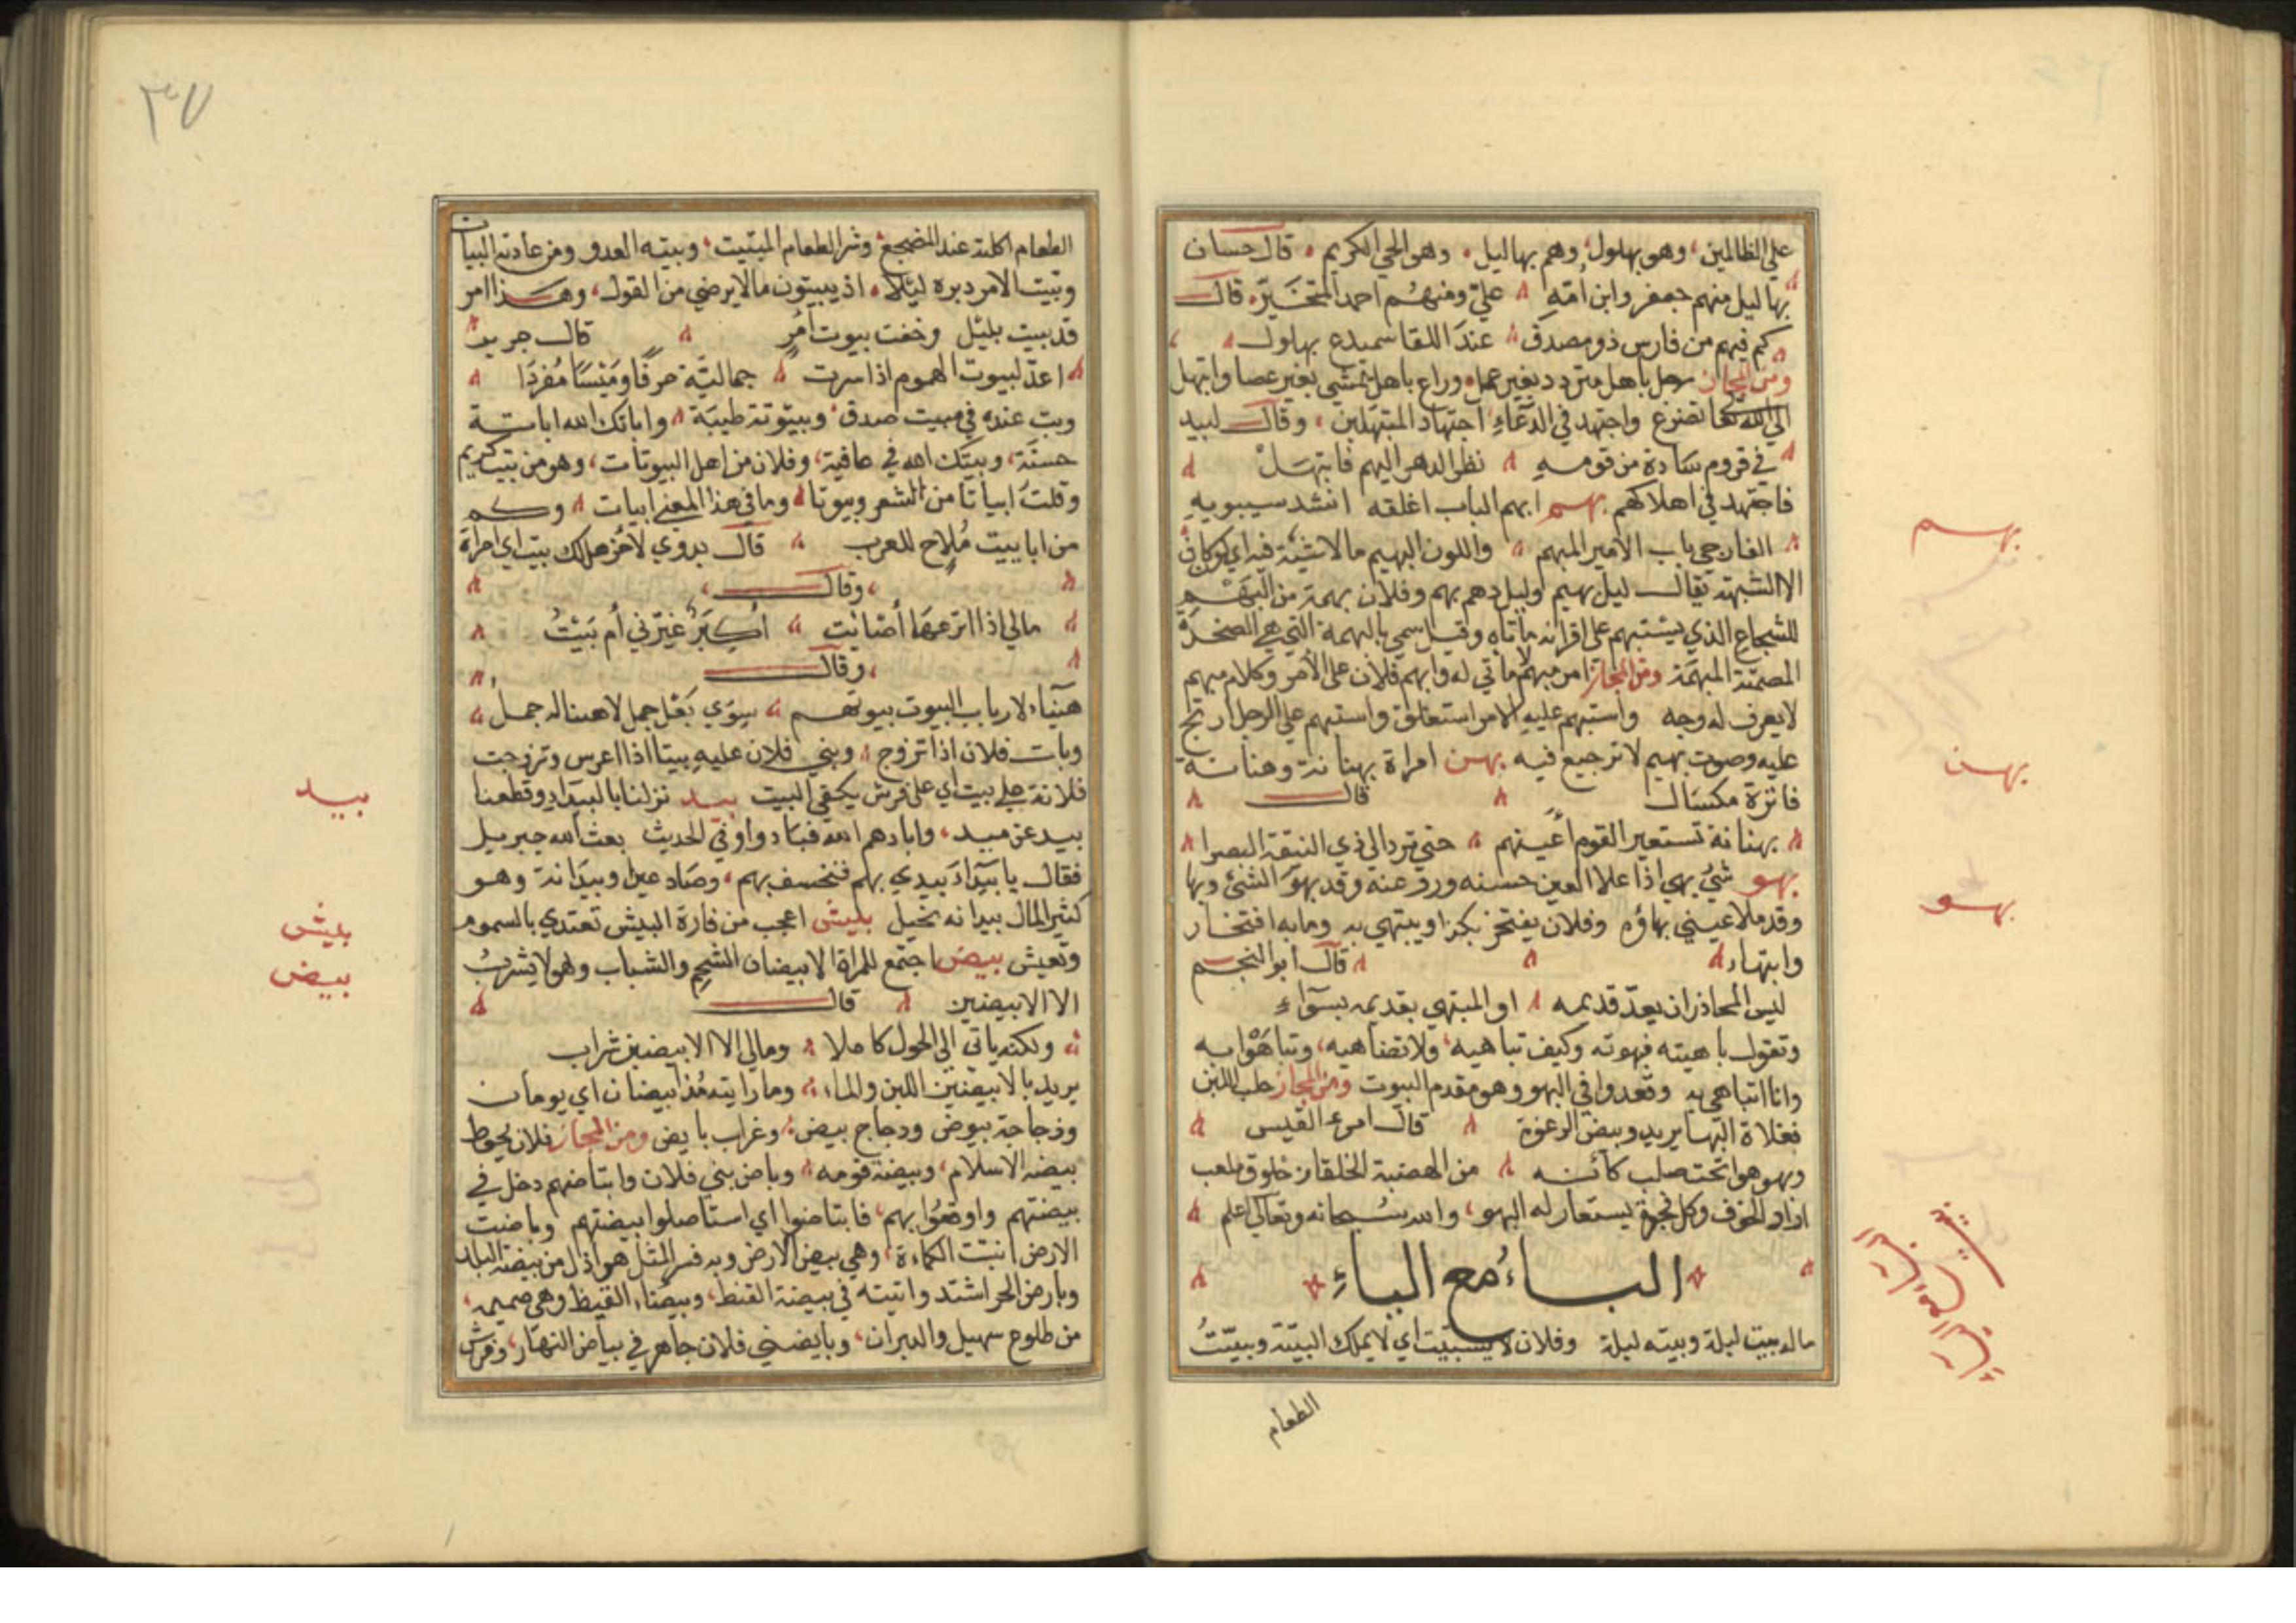 على الظالمين، وهو بهلول، وهم بهاليل، وهو الحي الكريم، قال حسان
بهاليل منهم جعفر وابن أمه علي ومنهم احمد المتخير، قال
كم فيهم من فارس ذو مصدق عند اللقا سميدع بهلول
ومن المجاز رجل باهل متردد بغير عمل، وراع باهل يمشي بغير عصا وابتهل
الى الله تعا تضرع واجتهد في الدعاء اجتهاد المبتهلين، وقال لبيد
في قروم سادة من قومه نظر الدهر اليهم فابتهل
فاجتهد في اهلاكهم بهم ابهم الباب اغلقه انشد سيبويه
الفارجي باب الامير المبهم واللون البهيم ما لا شية فيه اي لون كان
الا الشبهة يقال ليل بهيم وليل دهم بهم وفلان بهمة من البهم
للشجاع الذي يستبهم على اقرانه مأتاه وقيل سمي بالبهمة التي هي الصخرة
المصمتة المبهمة ومن المجاز امر مبهم لا ماتي له وابهم فلان على الامر وكلام مبهم
لا يعرف له وجه واستبهم عليه الامر استغلق واستبهم على الرجل ارتج
عليه وصوت بهيم لا ترجيع فيه بهن امراة بهنانة وهنانة
فاترة مكسال قال
بهنانة تستعير القوم اعينهم حتى ترد الى ذي النيقة البصرا
بهو شئ بهي اذا علا العين حسنه وروعته وقد بهو الشئ وبها
وقد ملا عيني بهاؤه وفلان يفتخر بكذا ويبتهي به وما به افتخار
وابتهاء قال أبو النجم
ليس المحاذر ان يعد قديمه او المبتهي بقديمه بسوآء
وتقول باهيته فبهوته وكيف تباهيه ولا تضاهيه، وتباهوا به
وانا اتباهى به وقعدوا في البهو وهو مقدم البيوت ومن المجاز حلب اللبن
فعلاه البها يريد وبيض الرغوة قال امرء القيس
وبهو هوا تحت صلب كأنه من الهضبة الخلقاء زحلوق ملعب
اراد الجوف وكل فجوة يستعار له البهو، والله سبحانه وتعالى اعلم
الباء مع الياء
ماله بيت ليلة وبيته ليلة وفلان لا يستبيت اي لا يملك البيتة وبيّتُ
الطعام
بهم
بهن
بهو
٣٧
الطعام اكلته عند المضجع وشر الطعام المبيت، وبيته العدو ومن عادته البيات
وبيت الامر دبره ليلا، اذ يبيتون ما لا يرضى من القول، وهذا امر
قد بيت بليل وخفت بيوت امر قال جرير
اعد لبيوت الهموم اذا سرت جمالية حرفا وميسا مفردا
وبت عنده في مبيت صدق وبيتوتة طيبة واباتك الله اباتة
حسنة، وبيتك الله في عافية، وفلان من اهل البيوتات، وهو من بيت كريم
وقلت ابياتا من الشعر وبيوتا وما في هذا المعنى ابيات وكم
من ابابيت ملاح للعرب قال بدوي لآخر هل لك بيت اي امراة
وقال
مالي اذا انزعها أصائت أكبر غيرني أم بيت
وقال
هنيئا لارباب البيوت بيوتهم سوى بغل جمل لا هناله جمل
وبات فلان اذا تزوج وبني فلان عليه بيتا اذا اعرس وتزوجت
فلانة على بيت اي على فرش يكفي البيت بيد نزلنا بالبيداء وقطعنا
بيد عن مبيد، وابادهم الله فبادوا وفي الحديث بعث الله جبريل
فقال يا بيداء بيدي بهم فتخسف بهم، وصاد عيرا وبيدانة وهو
كثير المال بيد انه بخيل بيش اعجب من فارة البيش تغتدي بالسموم
وتعيش بيض اجتمع للمراة الابيضان الشحم والشباب وهو لا يشرب
الا الابيضين قال
ولكنه ياتي الى الحول كاملا ومالي الا الابيضين شراب
يريد بالابيضين اللبن والماء، وما رايته مذ ابيضان اي يومان
ودجاجة بيوض ودجاج بيض، وغراب بايض ومن المجاز فلان يحوط
بيضة الاسلام، وبيضة قومه وباض بني فلان وابتاضهم دخل في
بيضتهم واوقعوا بهم، فابتاضوا اي استاصلوا بيضتهم وباضت
الارض انبتت الكماءة، وهي بيض الارض وبه فسر المثل هو اذل من بيضة البلد
وباض الحر اشتد واتيته في بيضة القيظ، وبيضاء القيظ وهي صميمه
من طلوع سهيل والدبران، وبايضني فلان جاهر في بياض النهار، وفرش
بيد
بيش
بيض